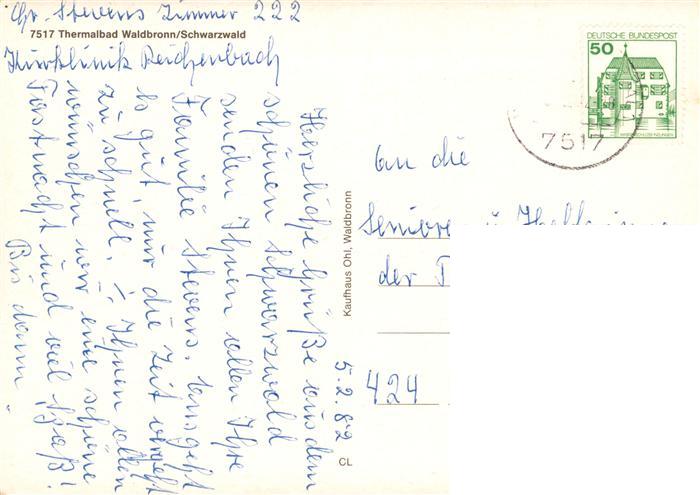 Chr. Stevens Zimmer 222
7517 Thermalbad Waldbronn/Schwarzwald
Kurklinik Reichenbach
Herzliche Grüße aus dem
schönen Schwarzwald
senden Ihnen allen Ihre
Familie Stevens. Uns geht
es gut nur die Zeit vergeht
zu schnell. Ihnen allen
wünschen wir eine schöne
Fastnacht und viel Spaß!
Bis dann
5.2.82
Kaufhaus Ohl, Waldbronn
CL
DEUTSCHE BUNDESPOST
50
7517
an die
Senioren u
der
424